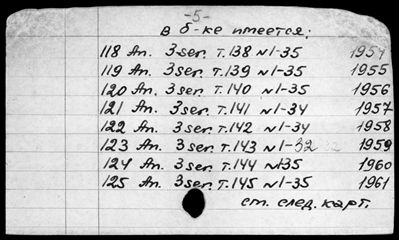 -5-
в б-ке имеется:
118 An. 3 ser. т.138 №1-35 1954
119 An. 3 ser. т.139 №1-35 1955
120 An. 3 ser. т.140 №1-35 1956
121 An. 3 ser. т.141 №1-34 1957
122 An. 3 ser. т.142 №1-34 1958
123 An. 3 ser. т.143 №1-32 1959
124 An. 3 ser. т.144 №1-35 1960
125 An. 3 ser. т.145 №1-35 1961
ст. след. карт.